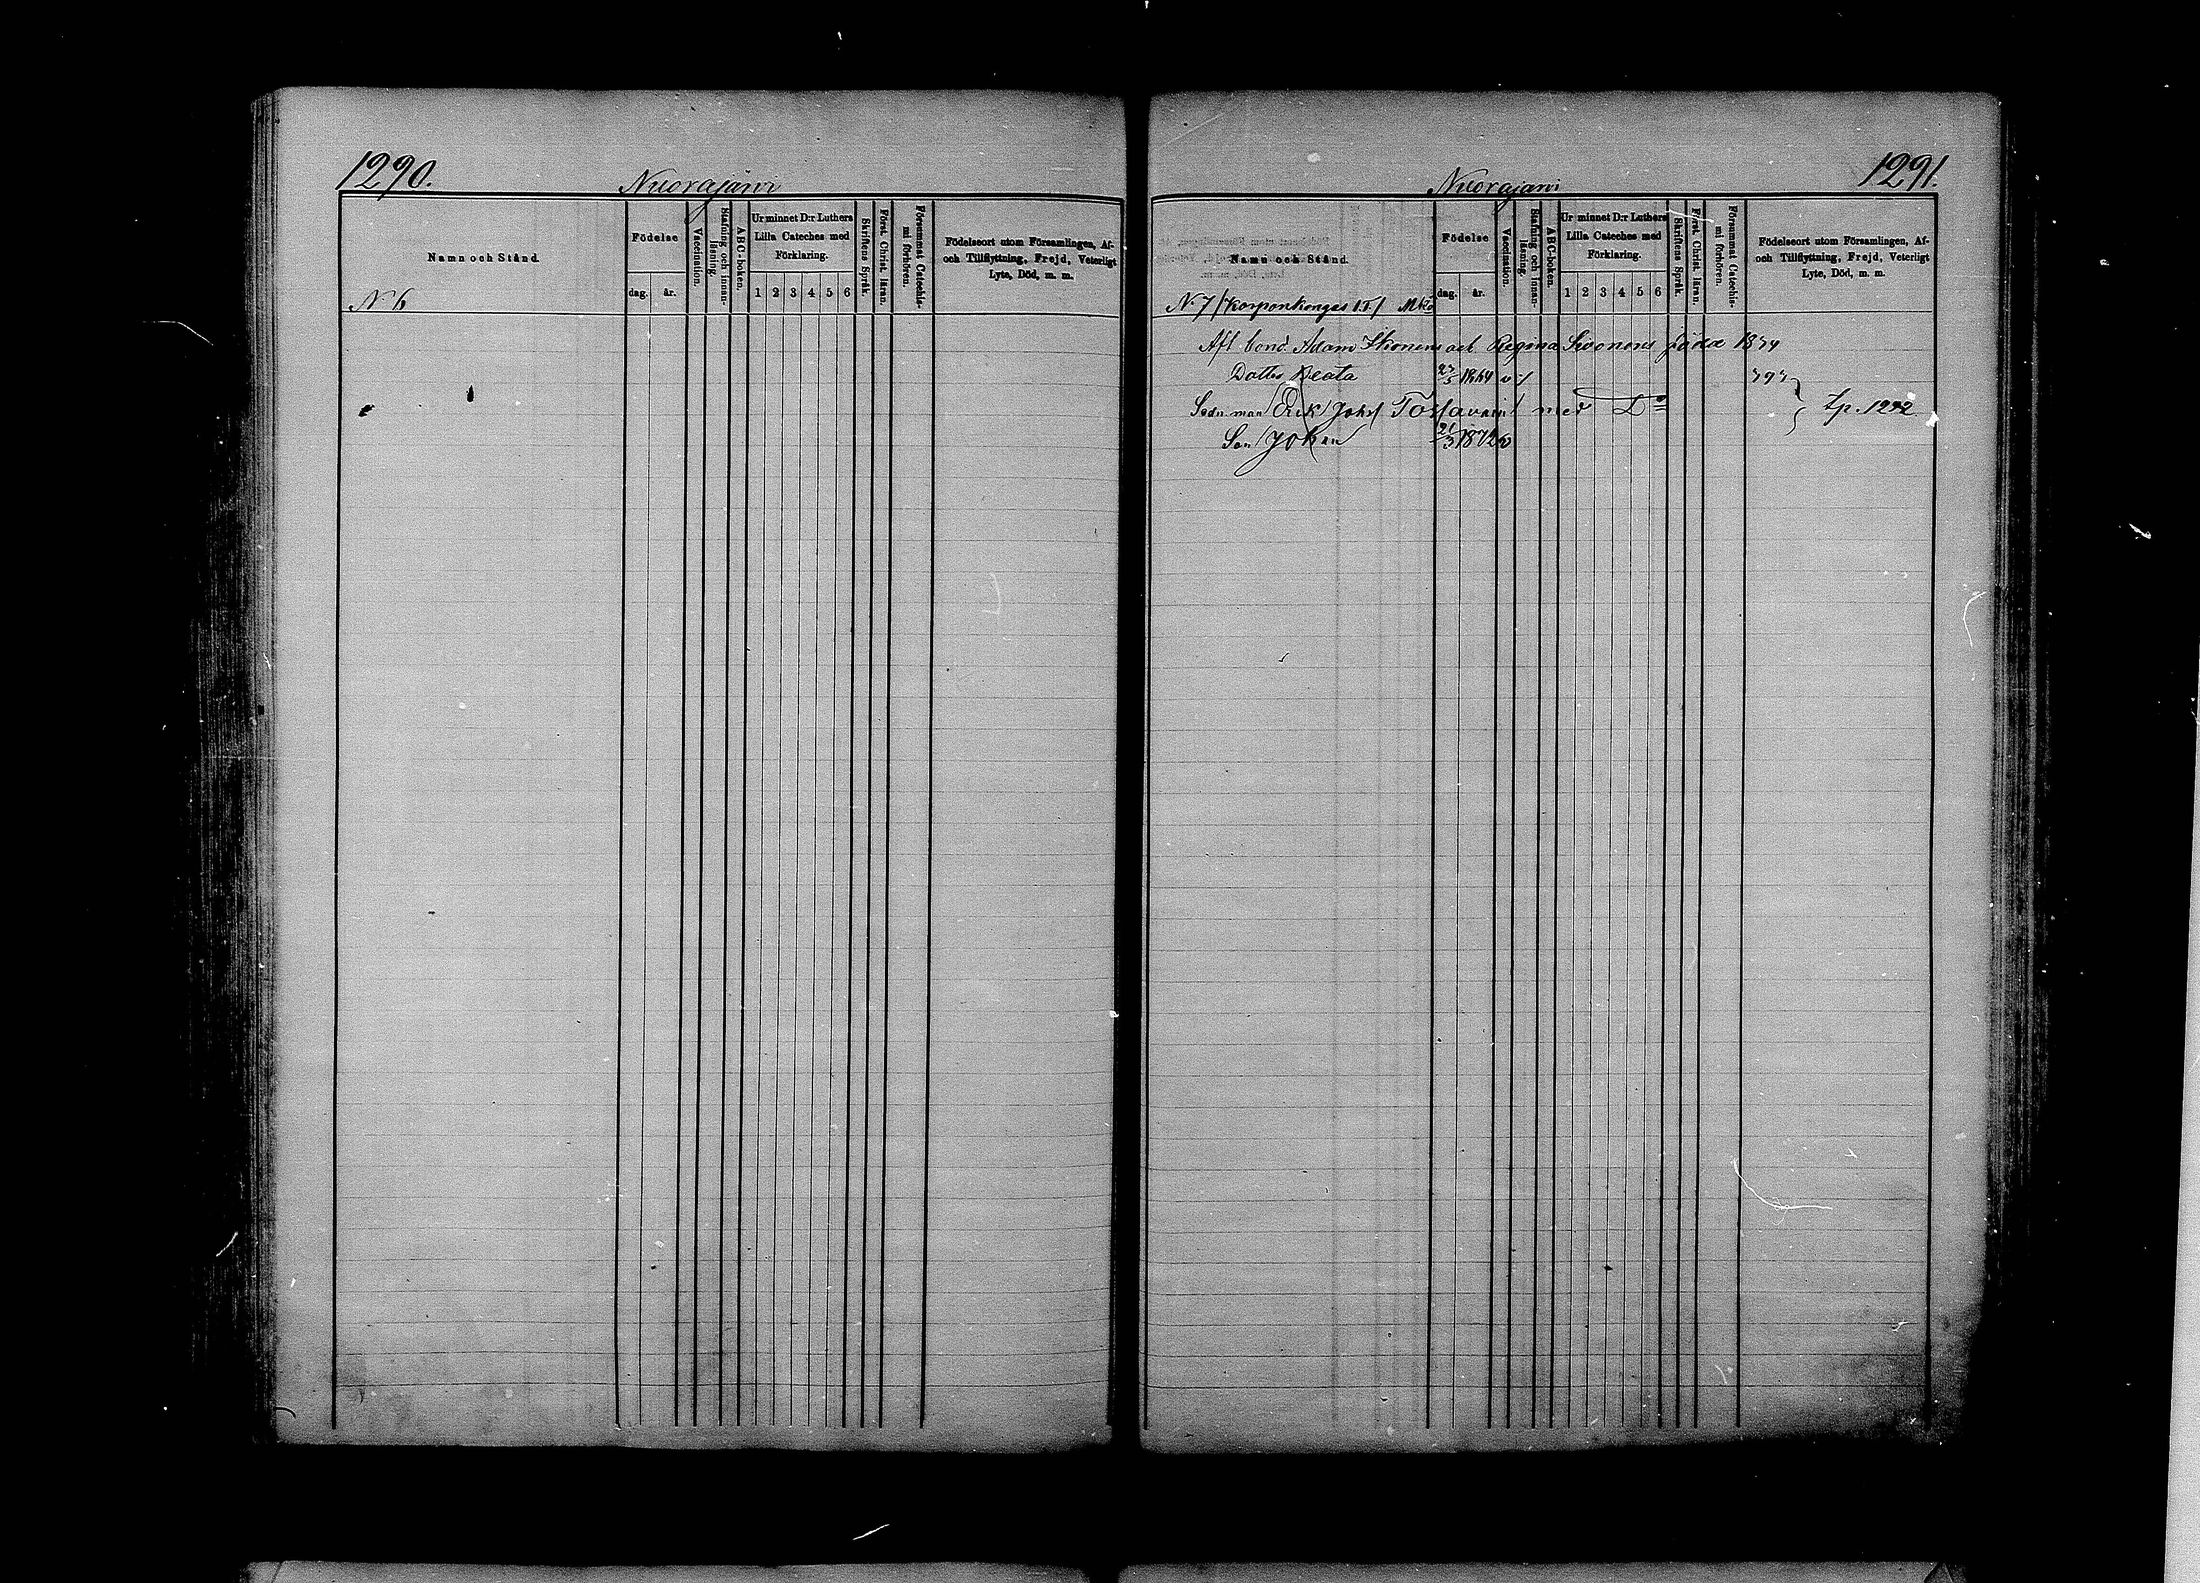 1290.
Nuorajärvi
Namn och Stånd.
Födelse
dag. år.
Vaccination.
Stafning och innanläsning.
ABC-boken.
Ur minnet D:r Luthers Lilla Cateches med Förklaring.
1 2 3 4 5 6
Skriftens Språk.
Först. Christ. läran.
Försummat Catechismi förhören.
Födelseort utom Församlingen, Af- och Tillflyttning, Frejd, Veterligt Lyte, Död, m. m.
N 6
1291.
Nuorajärvi
Namn och Stånd.
Födelse
dag. år.
Vaccination.
Stafning och innanläsning.
ABC-boken.
Ur minnet D:r Luthers Lilla Cateches med Förklaring.
1 2 3 4 5 6
Skriftens Språk.
Först. Christ. läran.
Försummat Catechismi förhören.
Födelseort utom Församlingen, Af- och Tillflyttning, Frejd, Veterligt Lyte, Död, m. m.
N. 7 /Korponkangas
Afl. bond. Adam Ikonens och Regina Sivonens födda
Dotter Beata 1864 v
man Erik Johs Tossavain med D:o Lp. 1292
Son Johan 21/3 1872 v